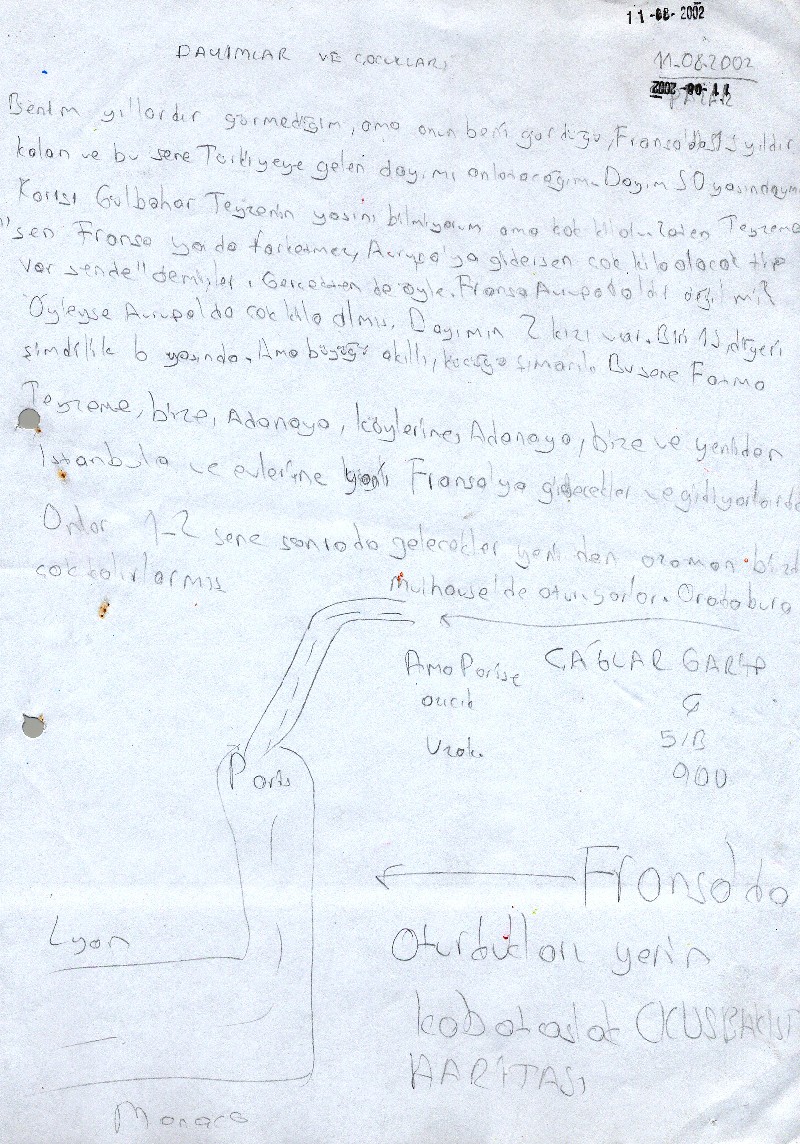 11-08-2002
DAYIMLAR VE ÇOCUKLARI
11.08.2002
11-08-2002
PAZAR
Benim yıllardır görmediğim, ama onun beni gördüğü, Fransa'da yıldır
kalan ve bu sene Türkiyeye gelen dayımı anlatacağım. Dayım 50 yaşındaymış
Karısı Gülbahar Teyzenin yaşını bilmiyorum ama çok kilolu. Zaten Teyzeme
"sen Fransa ya da farketmez, Avrupa'ya gidersen çok kilo alacak tip
var sende" demişler. Gerçekten de öyle. Fransa Avrupada'dır değil mi?
Öyleyse Avrupa'da çok kilo almış. Dayımın 2 kızı var. Biri 12, diğeri
şimdilik 6 yaşında. Ama büyüğü akıllı, küçüğü şımarık. Bu sene Fatma
Teyzeme, bize, Adanaya, köylerine, Adanaya, bize ve yeniden
İstanbula ve evlerine yani Fransa'ya gidecekler ve gidiyorlardı
Onlar 1-2 sene sonrada gelecekler yeniden o zaman bizde
çok kalırlarmış
Mulhouse'de oturuyorlar. Orada bura
Ama Parise ÇAĞLAR GARİP
azıcık Ç
Uzak. 5/B
900
Paris
Fransa'da
Lyon
Oturdukları yerin
kabataslak KUŞBAKIŞI
HARİTASI
Monaco